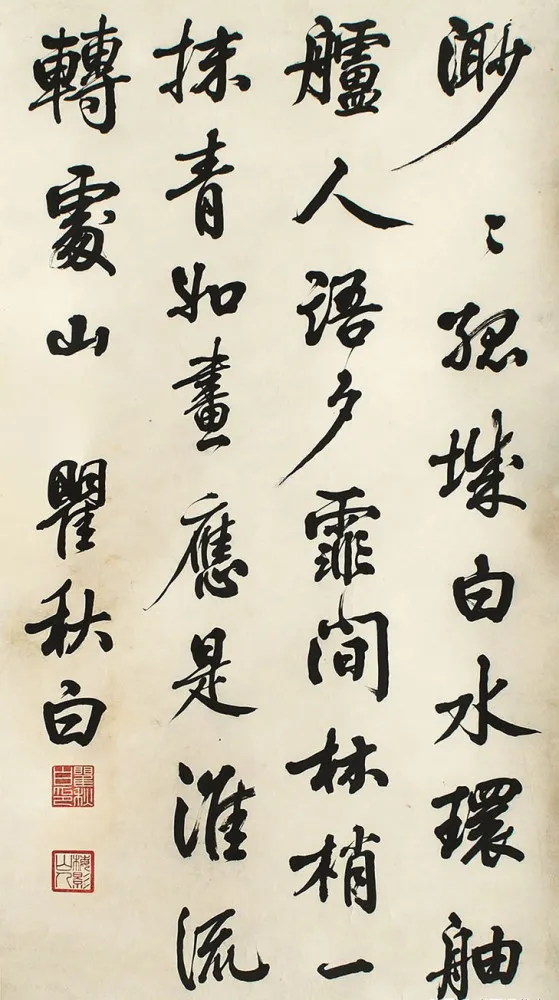 渺〻孤城白水環舳
艫人語夕霏間林梢一
抹青如畫應是淮流
轉處山 瞿秋白
瞿秋白印
梅影山人